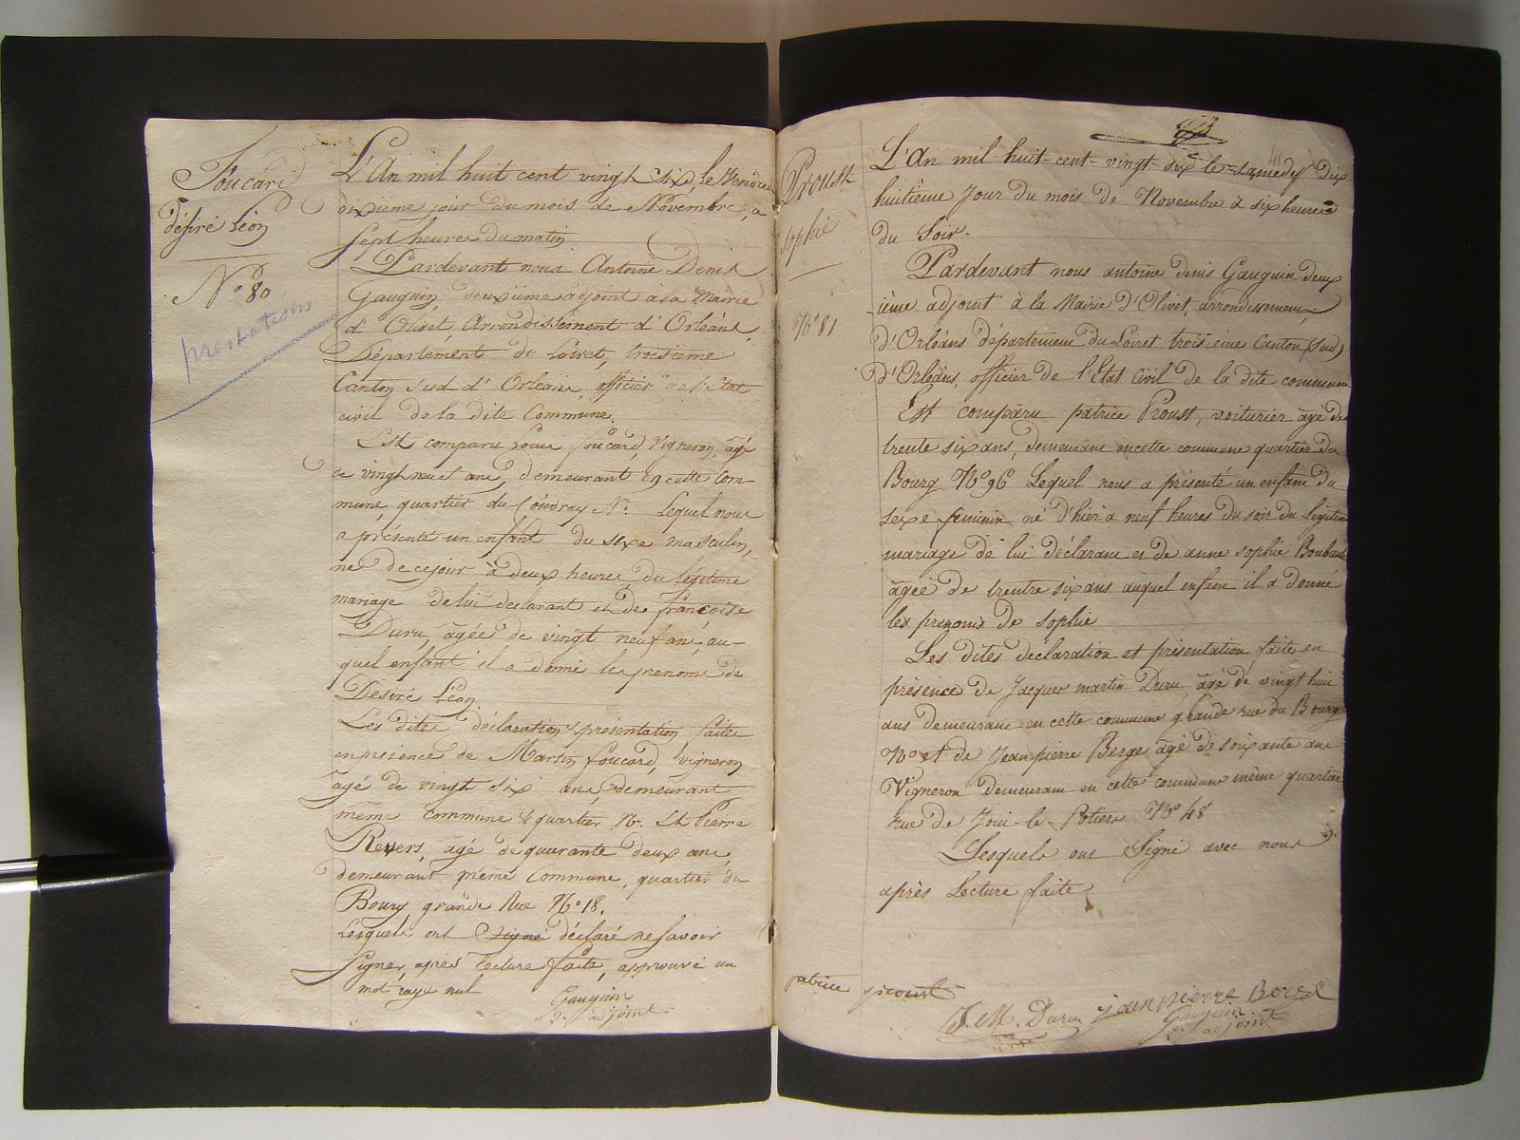 Foucard
Désiré Léon
N.° 80
prestation
L'An mil huit cent vingt six, le Vendredi
dixieme jour du mois de Novembre, a
sept heures du matin
Pardevant nous Antoine Denis
Gauguin, deuxiime adjoint à la Mairie
d'Olivet, Arrondissement d'Orléans,
Département du Loiret, troisieme
Canton Sud d'Orleans, officier de l'Etat
civil de la dite Commune.
Est comparu Foucard, Vigneron, âgé
de vingt neuf ans, demeurant en cette Com-
mune, quartier du Coudray N.° Lequel nous
a présenté un enfant du sexe masculin,
né de cejour à deux heures du légitime
mariage de lui declarant et de françoise
Duru, âgée de vingt neuf ans, au-
quel enfant il a donné les prenoms de
Désiré Léon
Les dites déclaration & présentation faites
en présence de Martin foucard, Vigneron
âgé de vingt six ans, demeurant
même commune & quartier N.° Et Pierre
Revers, âgé de quarante deux ans,
demeurant même Commune, quartier du
Bourg grande Rue N.° 18.
Lesquels ont signé déclaré ne savoir
Signer, après lecture faite, approuvé un
mot rayé nul
Gauguin
adjoint
Proust
sophie
N.° 81
L'An mil huit-cent-vingt-six le samedy dix
huitième Jour du mois de Novembre à six heures
du Soir.
Pardevant nous antoine denis Gauguin deux
ième adjoint à la Mairie d'Olivet, arrondissement
d'Orléans département du Loiret troisième Canton (sud)
d'Orléans, officier de l'Etat Civil de la dite commune
Est comparu patrice Proust, voiturier âgé de
trente six ans, demeurant en cette commune quartier du
Bourg N.° 96 Lequel nous a présenté un enfant du
sexe feminin né d'hier à neuf heures du soir du légitime
mariage de lui déclarant et de anne sophie
âgée de trentre six ans auquel enfant il a donné
les prenoms de sophie
Les dites declaration et présentation faite en
présence de Jacques martin Duru âgé de vingt huit
ans demeurant en cette commune grande rue du Bourg
N.° et de Jean pierre Berge âgé de soixante ans
Vigneron demeurant en cette commune même quartier
rue de Joui-le-Potiers N.° 48
Lesquels ont Signé avec nous
après Lecture faite.
patrice proust
J. M. Duru jean pierre
Gauguin
adjoint